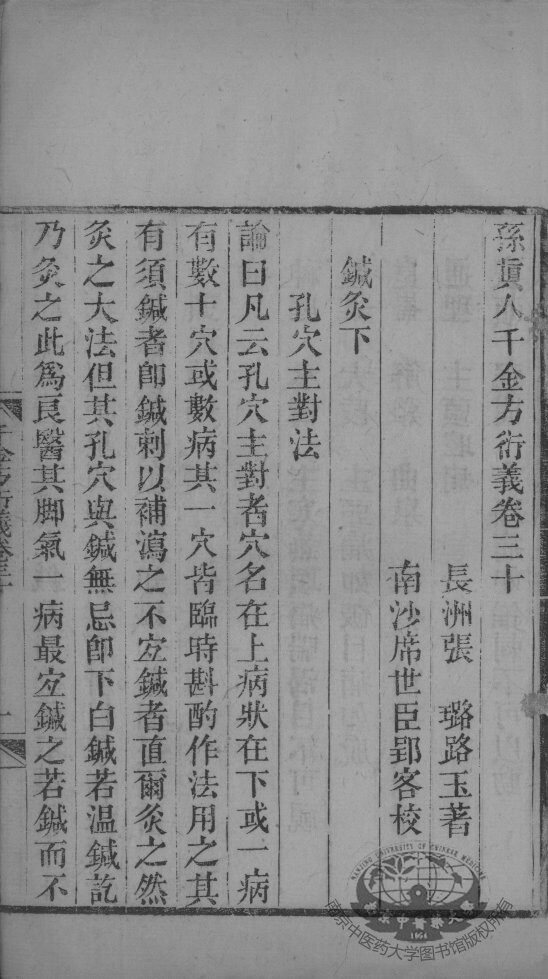 孫眞人千金方衍義卷三十
長洲張　璐路玉著
南沙席世臣郢客校
鍼灸下
孔穴主對法
論曰凡云孔穴主對者穴名在上病狀在下或一病
有數十穴或數病其一穴皆臨時斟酌作法用之其
有須鍼者卽鍼刺以補瀉之不宐鍼者直爾灸之然
灸之大法但其孔穴與鍼無忌卽下白鍼若温鍼訖
乃灸之此爲良醫其脚氣一病最宐鍼之若鍼而不
千金方衍義卷三十
一
NANJING UNIVERSITY OF CHINESE MEDICINE
南京中醫藥大學
1954
南京中医药大学图书馆版权所有